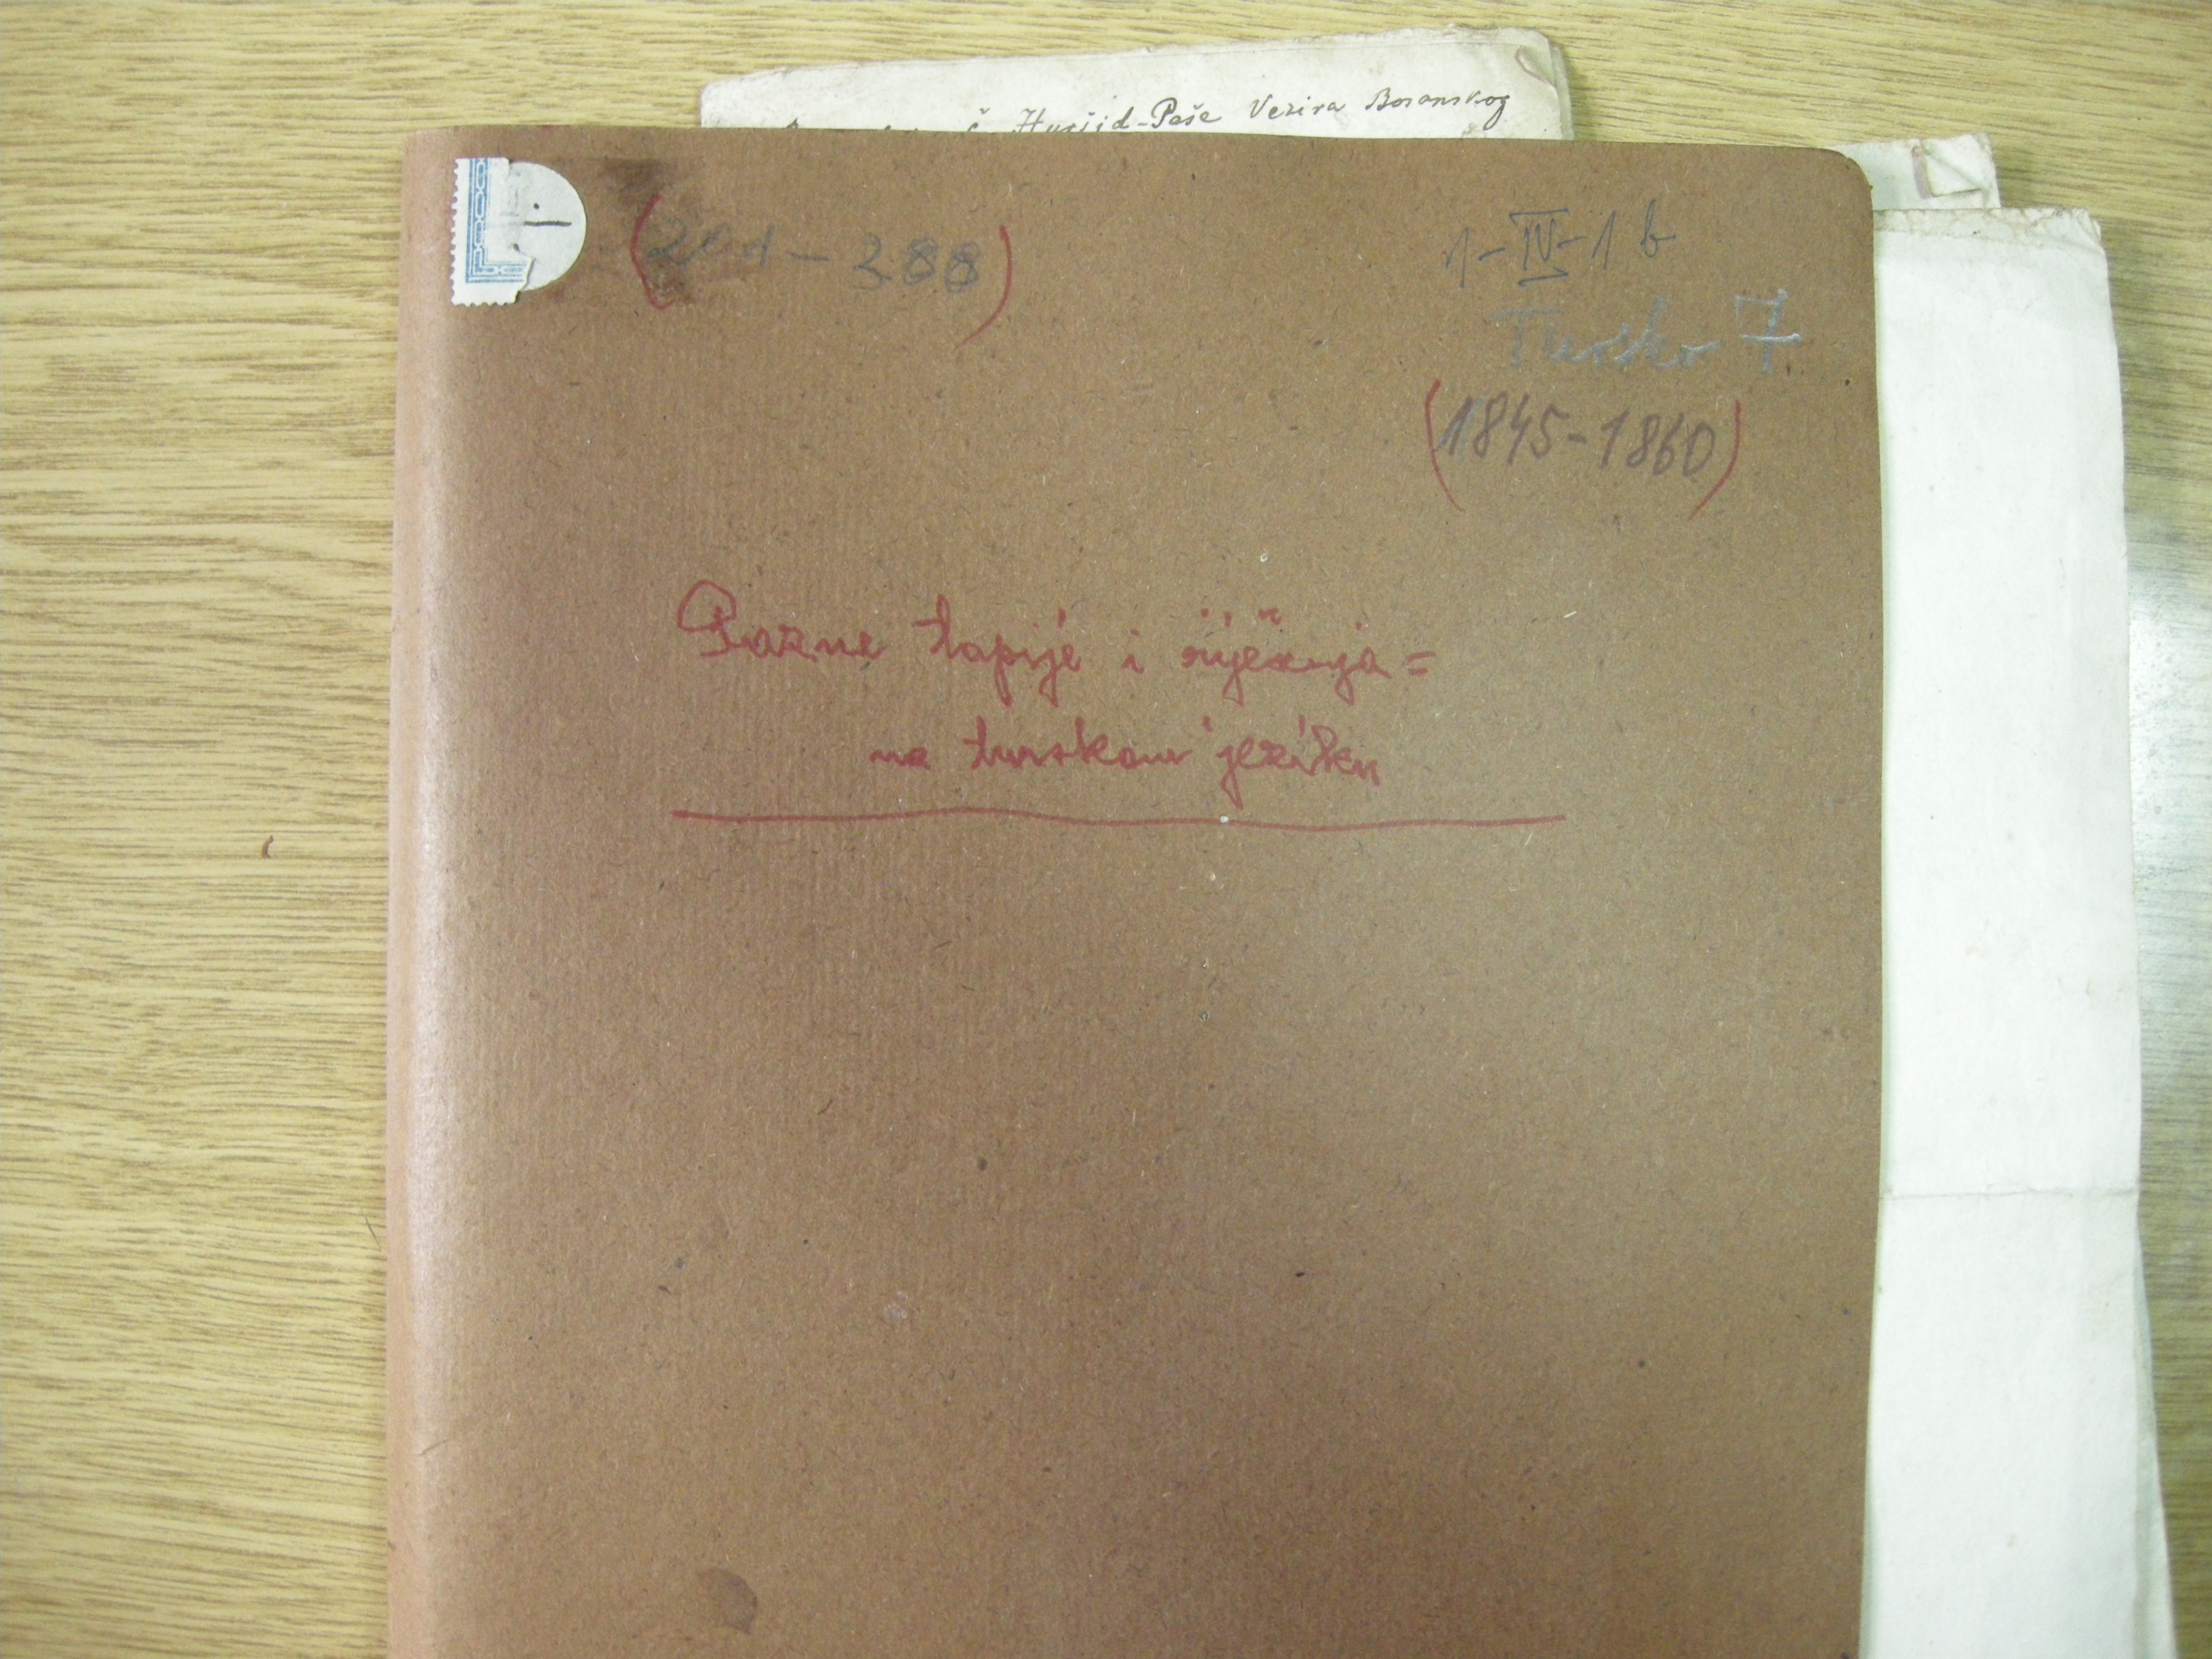 Huršid-Paše Vezira Bosanskog
(201-288)
1-IV-1 b
Tursko 7.
(1845-1860)
Razne tapije i riješenja =
na turskom jeziku